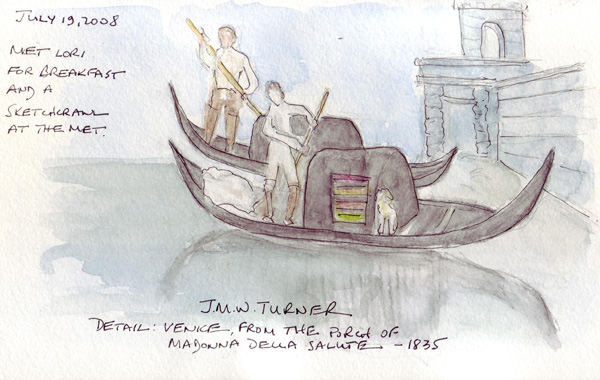 JULY 19, 2008
MET LORI
FOR BREAKFAST
AND A
SKETCHCRAWL
AT THE MET.
J.M.W. TURNER
DETAIL: VENICE, FROM THE PORCH OF
MADONNA DELLA SALUTE - 1835